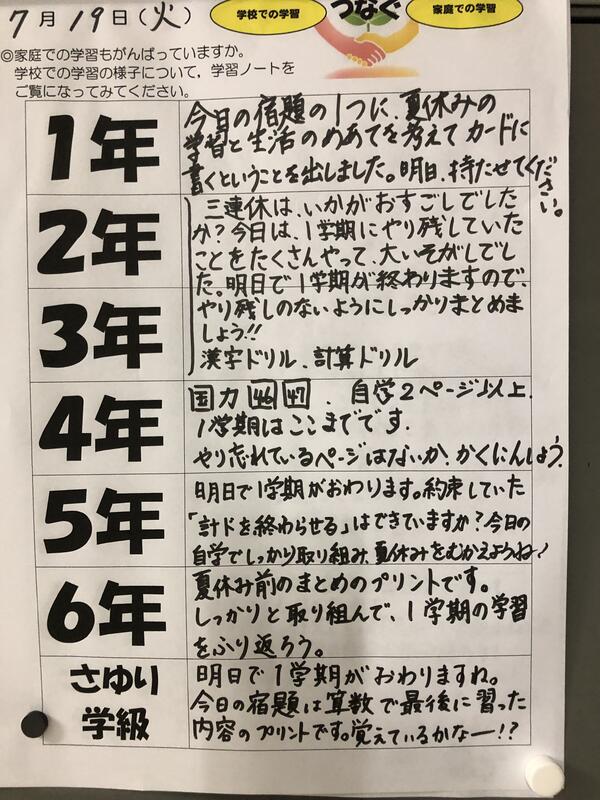 7月19日(火)
学校での学習
つなぐ
家庭での学習
◎家庭での学習もがんばっていますか。
学校での学習の様子について，学習ノートを
ご覧になってみてください。
1年
今日の宿題の1つに、夏休みの
学習と生活のめあてを考えてカードに
書くということを出しました。明日、持たせてください。
2年
3年
三連休は、いかがおすごしでした
か？今日は、1学期にやり残していた
ことをたくさんやって、大いそがしでし
た。明日で1学期が終わりますので、
やり残しのないようにしっかりまとめま
しょう!!
漢字ドリル、計算ドリル
4年
国力 46 47 、自学2ページ以上、
1学期はここまでです。
やり忘れているページはないか、かくにんしよう。
5年
明日で1学期がおわります。約束していた
「計ドを終わらせる」はできていますか？今日の
自学でしっかり取り組み、夏休みをむかえようね！
6年
夏休み前のまとめのプリントです。
しっかりと取り組んで、1学期の学習
をふり返ろう。
さゆり
学級
明日で1学期がおわりますね。
今日の宿題は算数で最後に習った
内容のプリントです。覚えているかなー!?